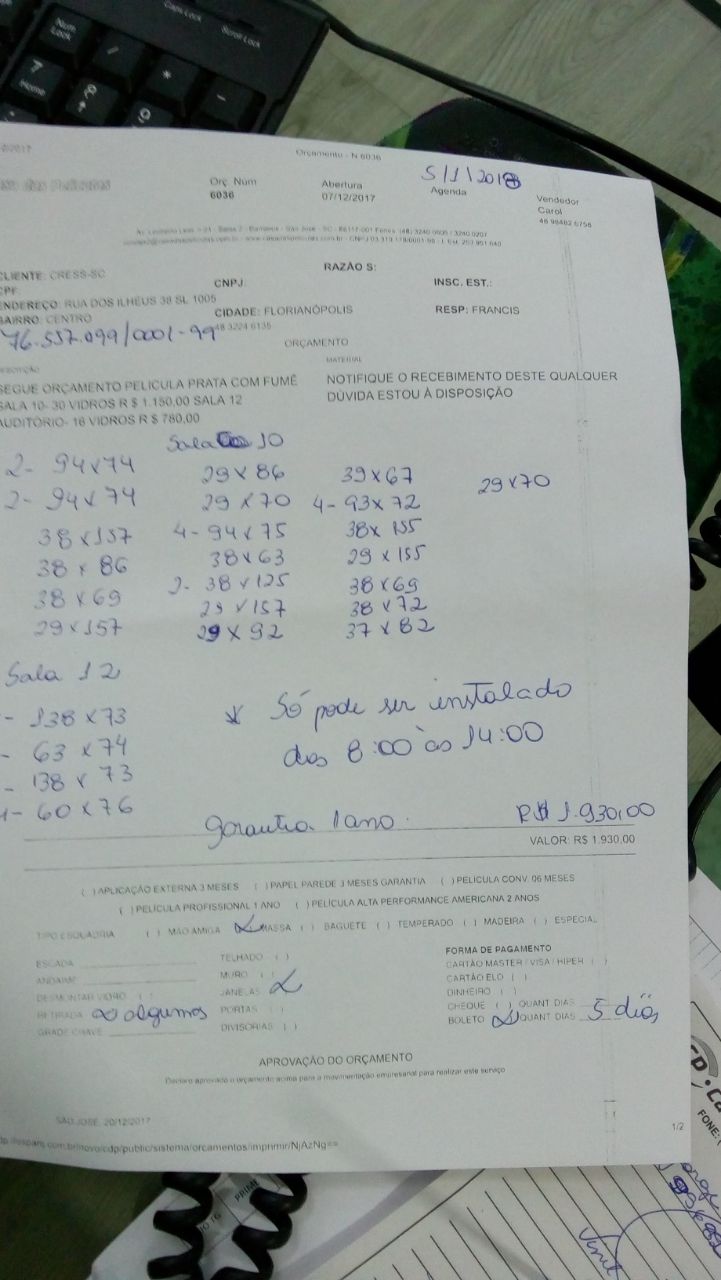 Num Lock
Caps Lock
Scroll Lock
7 Home
8
9
/
*
-
Orçamento - N 6036
Orç. Num
6036
Abertura
07/12/2017
5/1/2018
Agenda
Vendedor
Carol
CLIENTE: CRESS-SC
CNPJ:
RAZÃO S:
INSC. EST.:
CPF:
ENDEREÇO: RUA DOS ILHEUS 38 SL 1005
CIDADE: FLORIANÓPOLIS
RESP: FRANCIS
BAIRRO: CENTRO
48 3224 6135
76.557.099/0001-99
ORÇAMENTO
MATERIAL
SEGUE ORÇAMENTO PELICULA PRATA COM FUMÊ
SALA 10- 30 VIDROS R $ 1.150,00 SALA 12
AUDITÓRIO- 16 VIDROS R $ 780,00
NOTIFIQUE O RECEBIMENTO DESTE QUALQUER
DÚVIDA ESTOU À DISPOSIÇÃO
Sala 10
2- 94x74 29x86 39x67 29x70
2- 94x74 29x70 4- 93x72
38x157 4- 94x75 38x155
38x86 38x63 29x155
38x69 2- 38x125 38x69
29x157 29x157 38x72
29x92 37x82
Sala 12
- 138x73
- 63x74
- 138x73
- 60x76
* Só pode ser instalado
das 8:00 às 14:00
garantia 1 ano.
R$ 1.930,00
VALOR: R$ 1.930,00
( ) APLICAÇÃO EXTERNA 3 MESES ( ) PAPEL PAREDE 3 MESES GARANTIA ( ) PELICULA CONV. 06 MESES
( ) PELÍCULA PROFISSIONAL 1 ANO ( ) PELÍCULA ALTA PERFORMANCE AMERICANA 2 ANOS
TIPO ESQUADRIA ( ) MÃO AMIGA (x) MASSA ( ) BAGUETE ( ) TEMPERADO ( ) MADEIRA ( ) ESPECIAL
ESCADA
ANDAIME
DESMONTAR VIDRO ( )
RETIRADA (x) algumas
GRADE CHAVE
TELHADO ( )
MURO ( )
JANELAS (x)
PORTAS ( )
DIVISÓRIAS ( )
FORMA DE PAGAMENTO
CARTÃO MASTER / VISA / HIPER ( )
CARTÃO ELO ( )
DINHEIRO ( )
CHEQUE ( ) QUANT DIAS
BOLETO (x) QUANT DIAS 5 dias
APROVAÇÃO DO ORÇAMENTO
Declaro aprovado o orçamento acima para a movimentação empresarial para realizar este serviço
SAO JOSE, 20/12/2017
1/2
FONE: